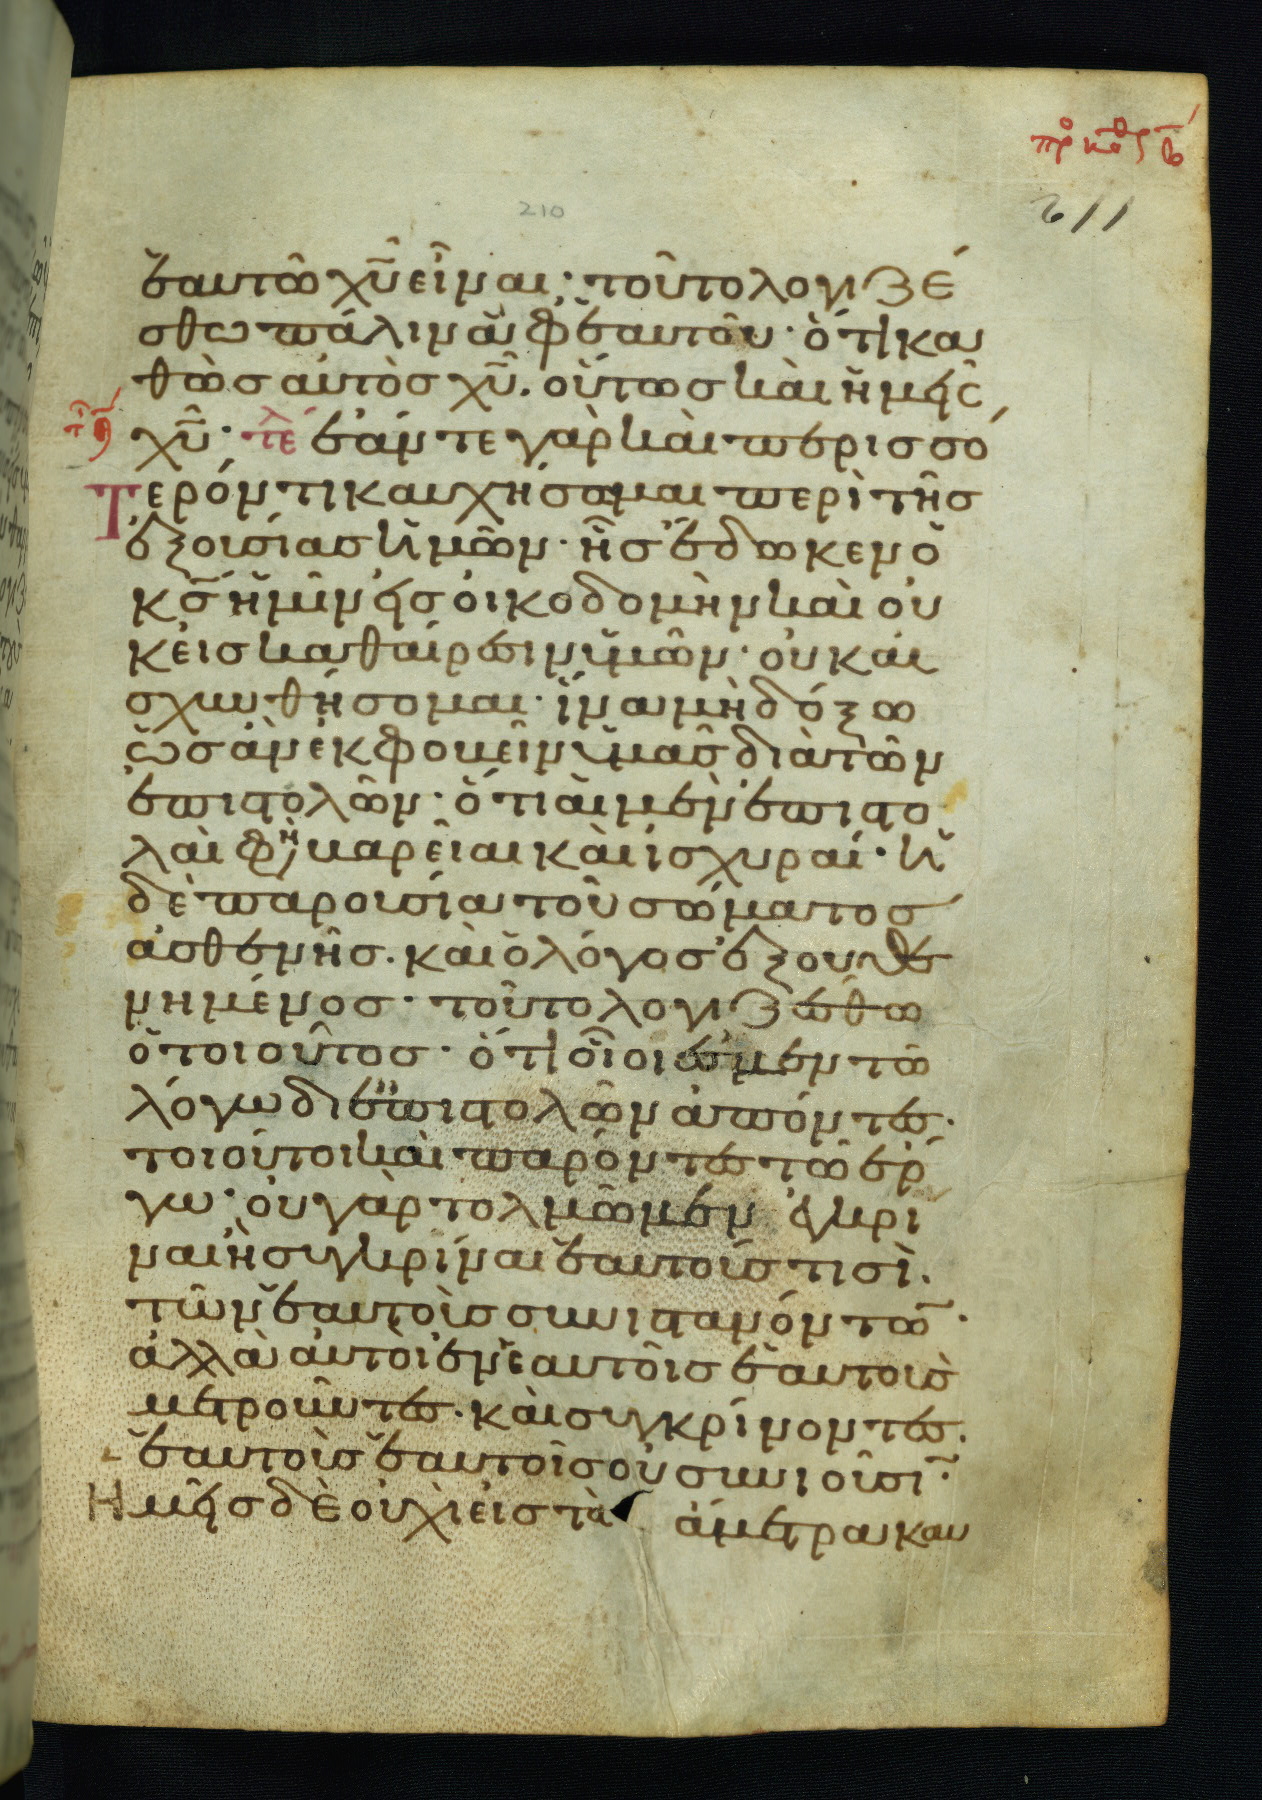 πρ κορ β
211
210
ἑαυτῶ χῦ εἶναι· τοῦτο λογιζέ
σθω πάλιν ἀφ ἑαυτοῦ· ὅτι κα
θὼσ αὐτὸσ χῦ. οὕτωσ καὶ ἡμεῖσ
χῦ· τε ἐάν τε γὰρ καὶ περισσό
τερόν τι καυχήσομαι περὶ τῆσ
ἐξουσίασ ἡμῶν· ἧσ ἔδωκεν ὁ
κσ ἡμῖν εἰσ οἰκοδομὴν καὶ οὐ
κ εἰσ καθαίρεσιν ὑμῶν· οὐκ αἰ
σχυνθήσομαι· ἵνα μὴ δόξω
ὡσ ἂν ἐκφοβεῖν ὑμᾶσ διὰ τῶν
ἐπιστολῶν· ὅτι αἱ μὲν ἐπιστο
λαὶ φη βαρεῖαι καὶ ἰσχυραί· ἡ
δὲ παρουσία τοῦ σώματοσ
ἀσθενῆσ. καὶ ὁ λόγοσ ἐξουθε
νημένοσ· τοῦτο λογιζέσθω
ὁ τοιοῦτοσ· ὅτι οἷοι ἐσμεν τῶ
λόγω δι ἐπιστολῶν ἀπόντεσ·
τοιοῦτοι καὶ παρόντεσ τῶ ἔρ
γω· οὐ γὰρ τολμῶμεν ἐγκρι
ναι ἢ συγκρίναι ἑαυτοίσ τισὶ.
τῶν ἑαυτοὶσ συνιστανόντων·
ἀλλὰ αὐτοὶ ἐν ἑαυτοῖσ ἑαυτοὺσ
μετροῦντεσ. καὶ συγκρίνοντεσ.
ἑαυτοὺσ ἑαυτοῖσ οὐ συνιοῦσιν·
Ἡμεῖσ δὲ οὐχὶ εἰσ τὰ ἄμετρα καυ